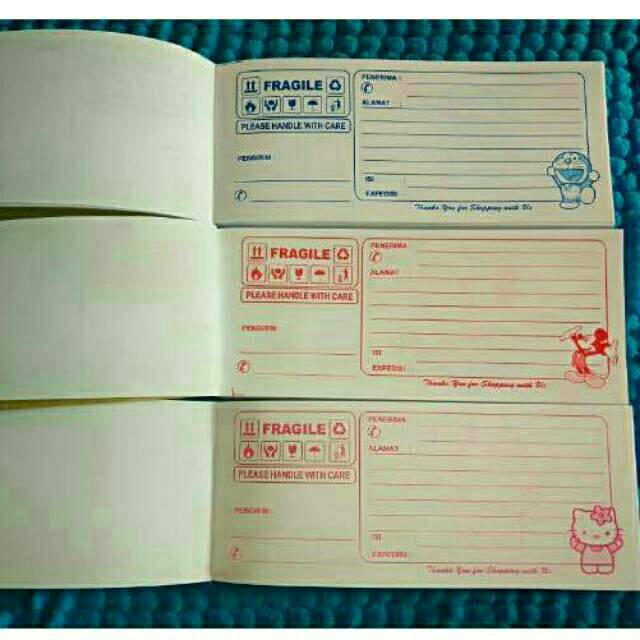 FRAGILE
PLEASE HANDLE WITH CARE
PENGIRIM
PENERIMA :
ALAMAT :
ISI
EXPEDISI
Thanks You for Shopping with Us
FRAGILE
PLEASE HANDLE WITH CARE
PENGIRIM
PENERIMA
ALAMAT
ISI
EXPEDISI
Thanks You for Shopping with Us
FRAGILE
PLEASE HANDLE WITH CARE
PENGIRIM :
PENERIMA
ALAMAT
ISI
EXPEDISI
Thanks You for Shopping with Us